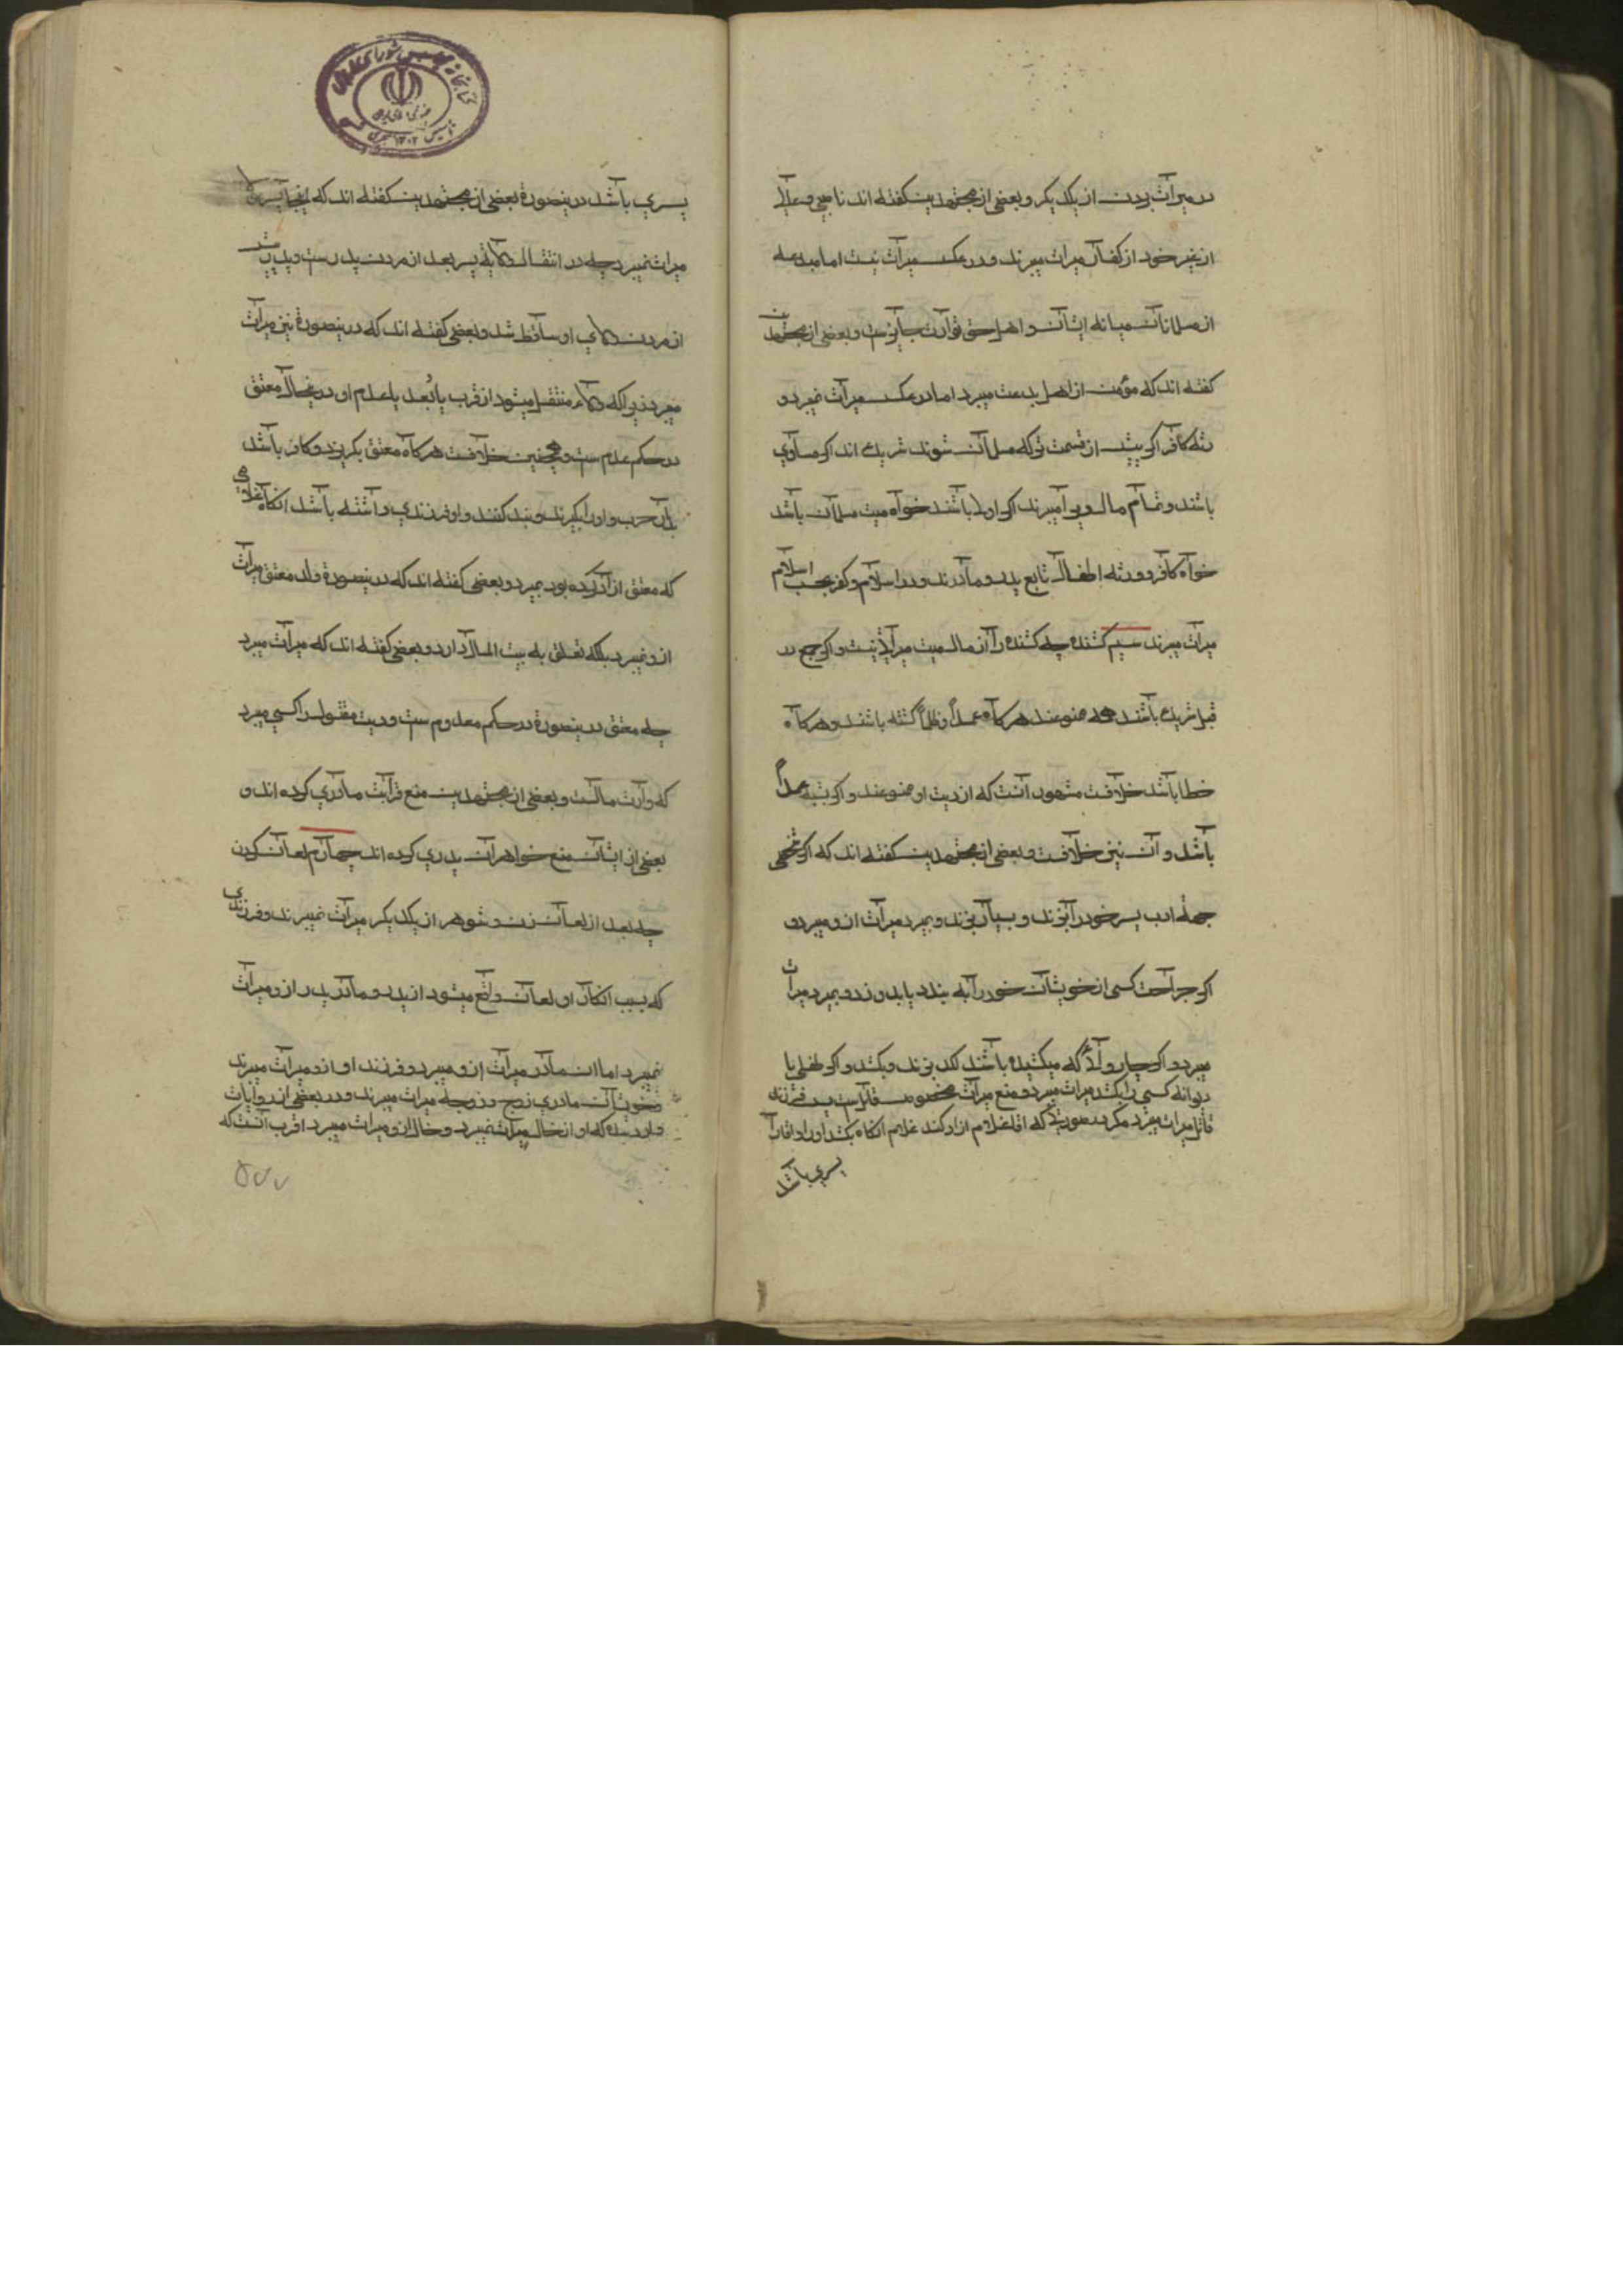 در میراث بردن از یکدیگر و بعضی از مجتهدین گفته اند ناصبی و غلاة
از غیر خود از کفار میراث میبرند و در عکس میراث نیست اما مبدعه
از مسلمانان میانه ایشان و اهل حق توارث جایزست و بعضی از مجتهدین
گفته اند که مؤمن از اهل بدعت میبرد اما در عکس میراث نمیبرد و
رثه کافر اگر پیش از قسمت ترکه مسلمان شوند شریک اند اگر مساوی
باشند و تمام مال و یرا میبرند اگر اولا باشند خواه میت مسلمان باشد
خواه کافر و ورثه اطفال تابع پدر و مادرند در اسلام و کفر بحسب اسلام
میراث میبرند سیم کشنده چه کشنده را از مال میت میراث نیست و اگر جمع در
قتل شریک باشند همه ممنوعند هرگاه عمداً و ظلماً کشته باشند و هرگاه
خطا باشد خلافست مشهور آنست که از دیت او ممنوعند و اگر شبیه عمداً
باشد و آن نیز خلافست و بعضی از مجتهدین گفته اند که اگر شخصی
جهة ادب پسر خود را بزند و بسیار بزند و بمیرد میراث ازو میبرد و
اگر جراحت کسی از خویشان خود را به بندد یا بدوزد و بمیرد میراث
میبرد و اگر چاروائی که میکشیده باشد لکد بزند و بکشد و اگر طفل یا
دیوانه کسی را بکشد میراث میبرد و منع میراث مخصوص قاتل است پس فرزند
قاتل میراث میبرد مگر در صورتی که آقا غلام ازاد کند غلام آنگاه بکشد او را و اقا را
پسری باشد
پسری باشد درینصورة بعضی از مجتهدین گفته اند که اینجا پسر
میراث نمیبرد چه در انتقال ولایة پسر بعد از مردن پدرست و پدر پیش
از مردن ولای او ساقط شد و بعضی گفته اند که درینصورة نیز میراث
میبرد زیرا که ولاء منتقل میشود از قرب یا بُعد یا عدم او درینحال معتق
در حکم عدم ست و همچنین خلافست هرگاه معتق بگریزد و کافر باشد
بدار حرب و او را بگیرند و بند کنند و او فرزندی داشته باشد آنگاه غلامی
که معتق از آزاد کرده بود بمیرد و بعضی گفته اند که درینصورة ولد معتق میراث
ازو نمیبرد بلکه تعلق به بیت المال دارد و بعضی گفته اند که میراث میبرد
چه معتق درینصورة در حکم معدوم ست و دیت مقتول را کسی میبرد
که وارث مالست و بعضی از مجتهدین منع قرابت مادری کرده اند و
بعضی از ایشان منع خواهران پدری کرده اند چهارم لعان کردن
چه بعد از لعان زن و شوهر از یکدیگر میراث نمیبرند و فرزندی
که بسبب انکار او لعان واقع میشود از پدر و مادر پدر ازو میراث
نمیبرد اما مادر میراث ازو میبرد و فرزند او ازو میراث میبرند
و خویشان مادری زوج و زوجه میراث میبرند و در بعضی از روایات
وارد شده که او از خال میراث نمیبرد و خال ازو میراث میبرد اقرب آنست که
۵۷۷